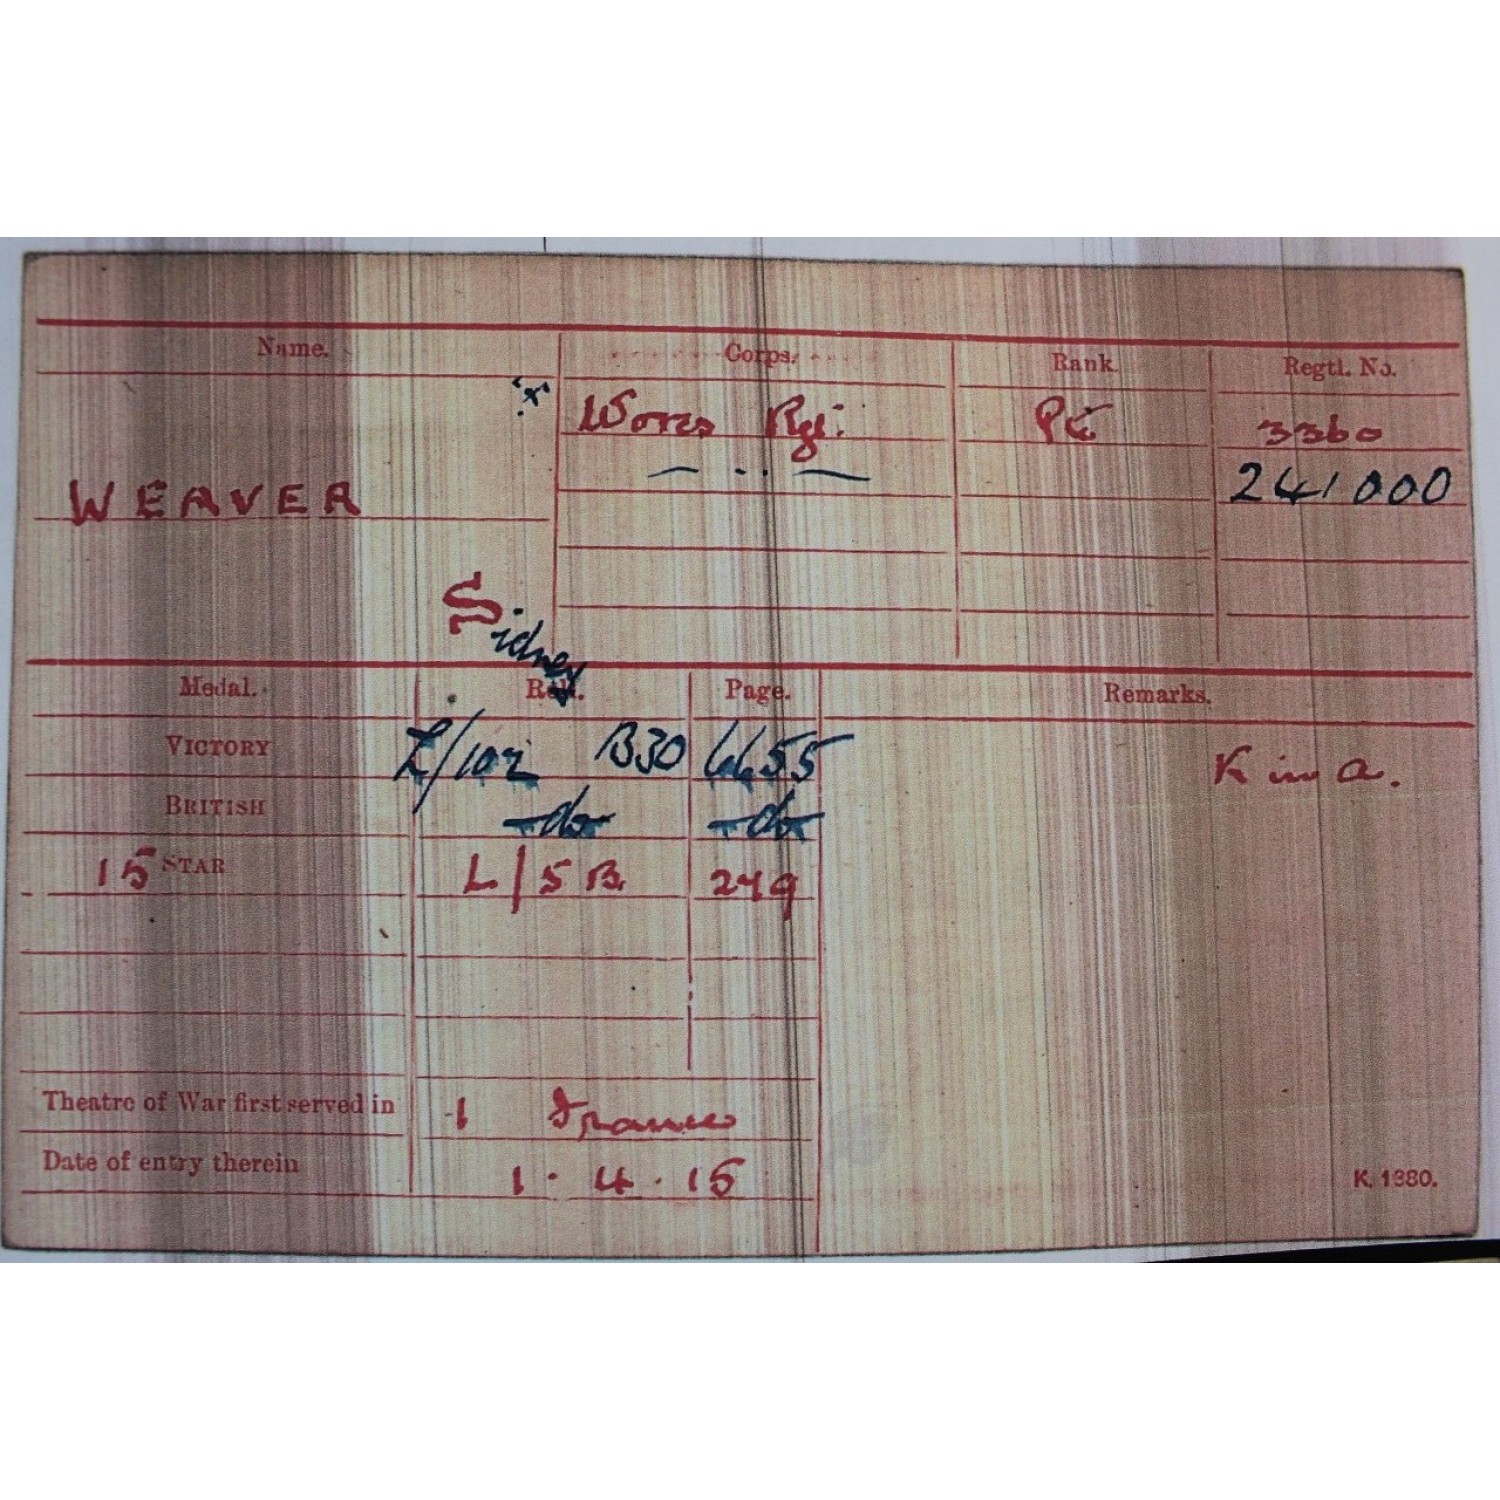 Name. Corps. Rank Regtl. No.
"x" Worcs Rgt. Pte 3360
WEAVER — " — 241000
Sidney
Medal. Roll. Page. Remarks.
VICTORY L/102 B30 6655 K in a.
BRITISH -do- -do-
15 STAR L/5 B. 249
Theatre of War first served in 1 France
Date of entry therein 1.4.15
K. 1380.